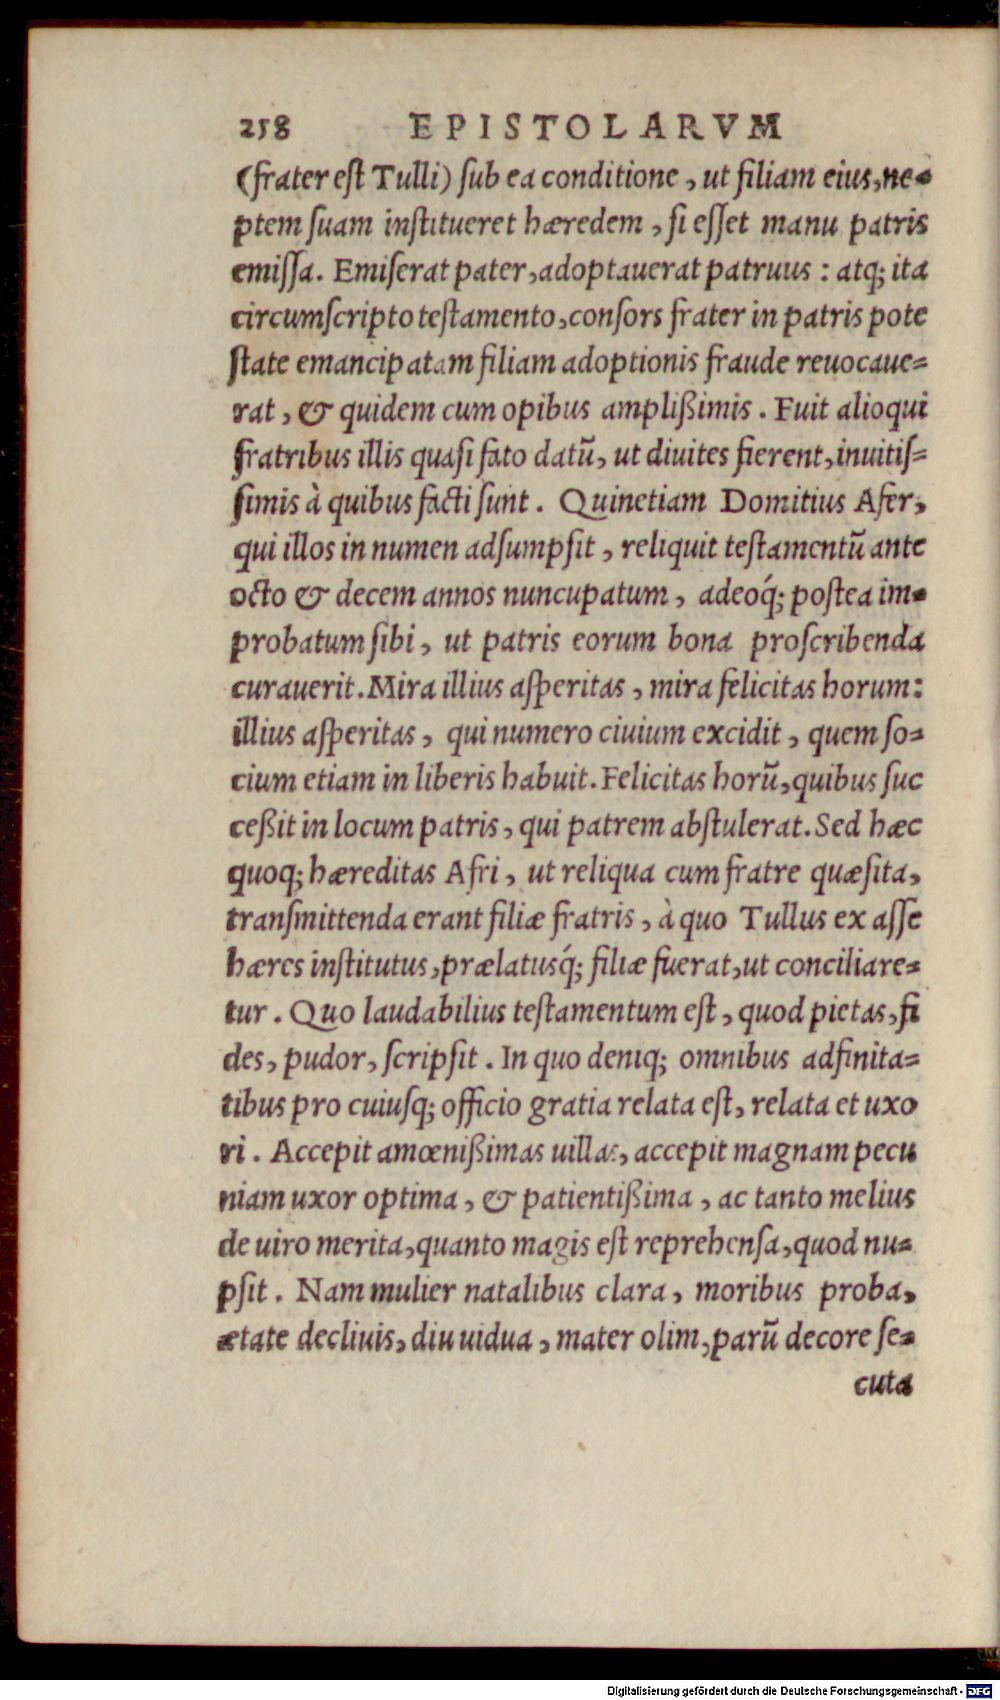 258 EPISTOLARVM
(frater eſt Tulli) ſub ea conditione, ut filiam eius, ne-
ptem ſuam inſtitueret hæredem, ſi eſſet manu patris
emiſſa. Emiſerat pater, adoptauerat patruus: atq; ita
circumſcripto teſtamento, conſors frater in patris pote
ſtate emancipatam filiam adoptionis fraude reuocaue-
rat, & quidem cum opibus amplißimis. Fuit alioqui
fratribus illis quaſi fato datũ, ut diuites fierent, inuitiſ-
ſimis à quibus facti ſunt. Quinetiam Domitius Afer,
qui illos in numen adſumpſit, reliquit teſtamentũ ante
octo & decem annos nuncupatum, adeoq́; poſtea im-
probatum ſibi, ut patris eorum bona proſcribenda
curauerit. Mira illius aſperitas, mira felicitas horum:
illius aſperitas, qui numero ciuium excidit, quem ſo-
cium etiam in liberis habuit. Felicitas horũ, quibus ſuc
ceßit in locum patris, qui patrem abſtulerat. Sed hæc
quoq; hæreditas Afri, ut reliqua cum fratre quæſita,
tranſmittenda erant filiæ fratris, à quo Tullus ex aſſe
hæres inſtitutus, prælatusq́; filiæ fuerat, ut conciliare-
tur. Quo laudabilius teſtamentum eſt, quod pietas, fi
des, pudor, ſcripſit. In quo deniq; omnibus adfinita-
tibus pro cuiuſq; officio gratia relata eſt, relata et uxo
ri. Accepit amœnißimas uillas, accepit magnam pecu
niam uxor optima, & patientißima, ac tanto melius
de uiro merita, quanto magis eſt reprehenſa, quod nu-
pſit. Nam mulier natalibus clara, moribus proba,
ætate decliuis, diu uidua, mater olim, parũ decore ſe-
cuta
Digitalisierung gefördert durch die Deutsche Forschungsgemeinschaft - DFG